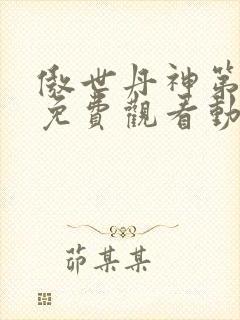 傲世丹神第
免費觀看動
茆某某